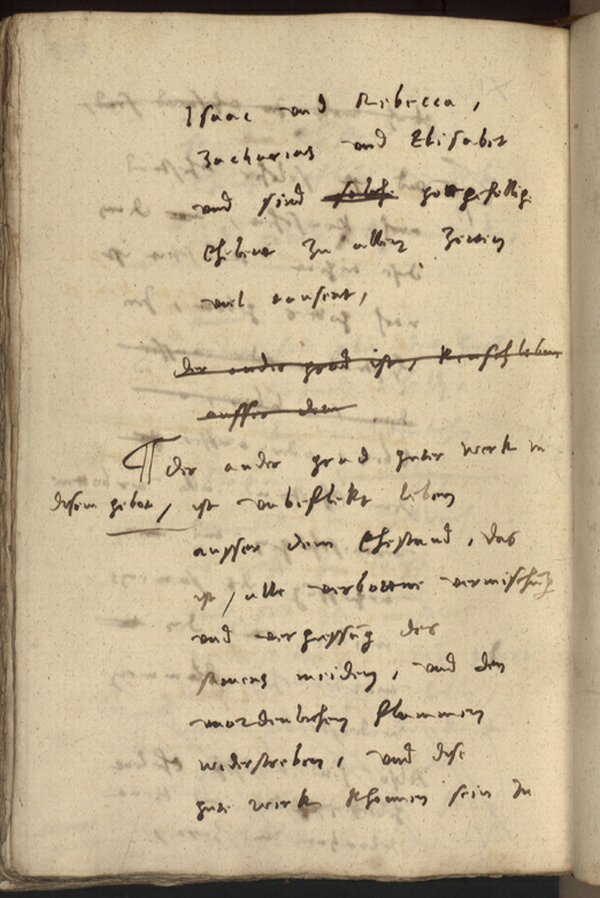 Isaac und Rebecca,
Zacharias und Elisabet
und sind solche gottgefellige
Eheleut zu allen Zeiten
viel tausent,
der ander grad ist, keusch leben
ausser dem
der ander grad guter werk in
disem gebot, ist unbeflekt leben
ausser dem Ehestand, das
ist, alle verbottne vermischung
und vergiessung des
samens meiden, und den
unordenlichen flammen
widerstreben, und dise
gute werk khonnen sein in